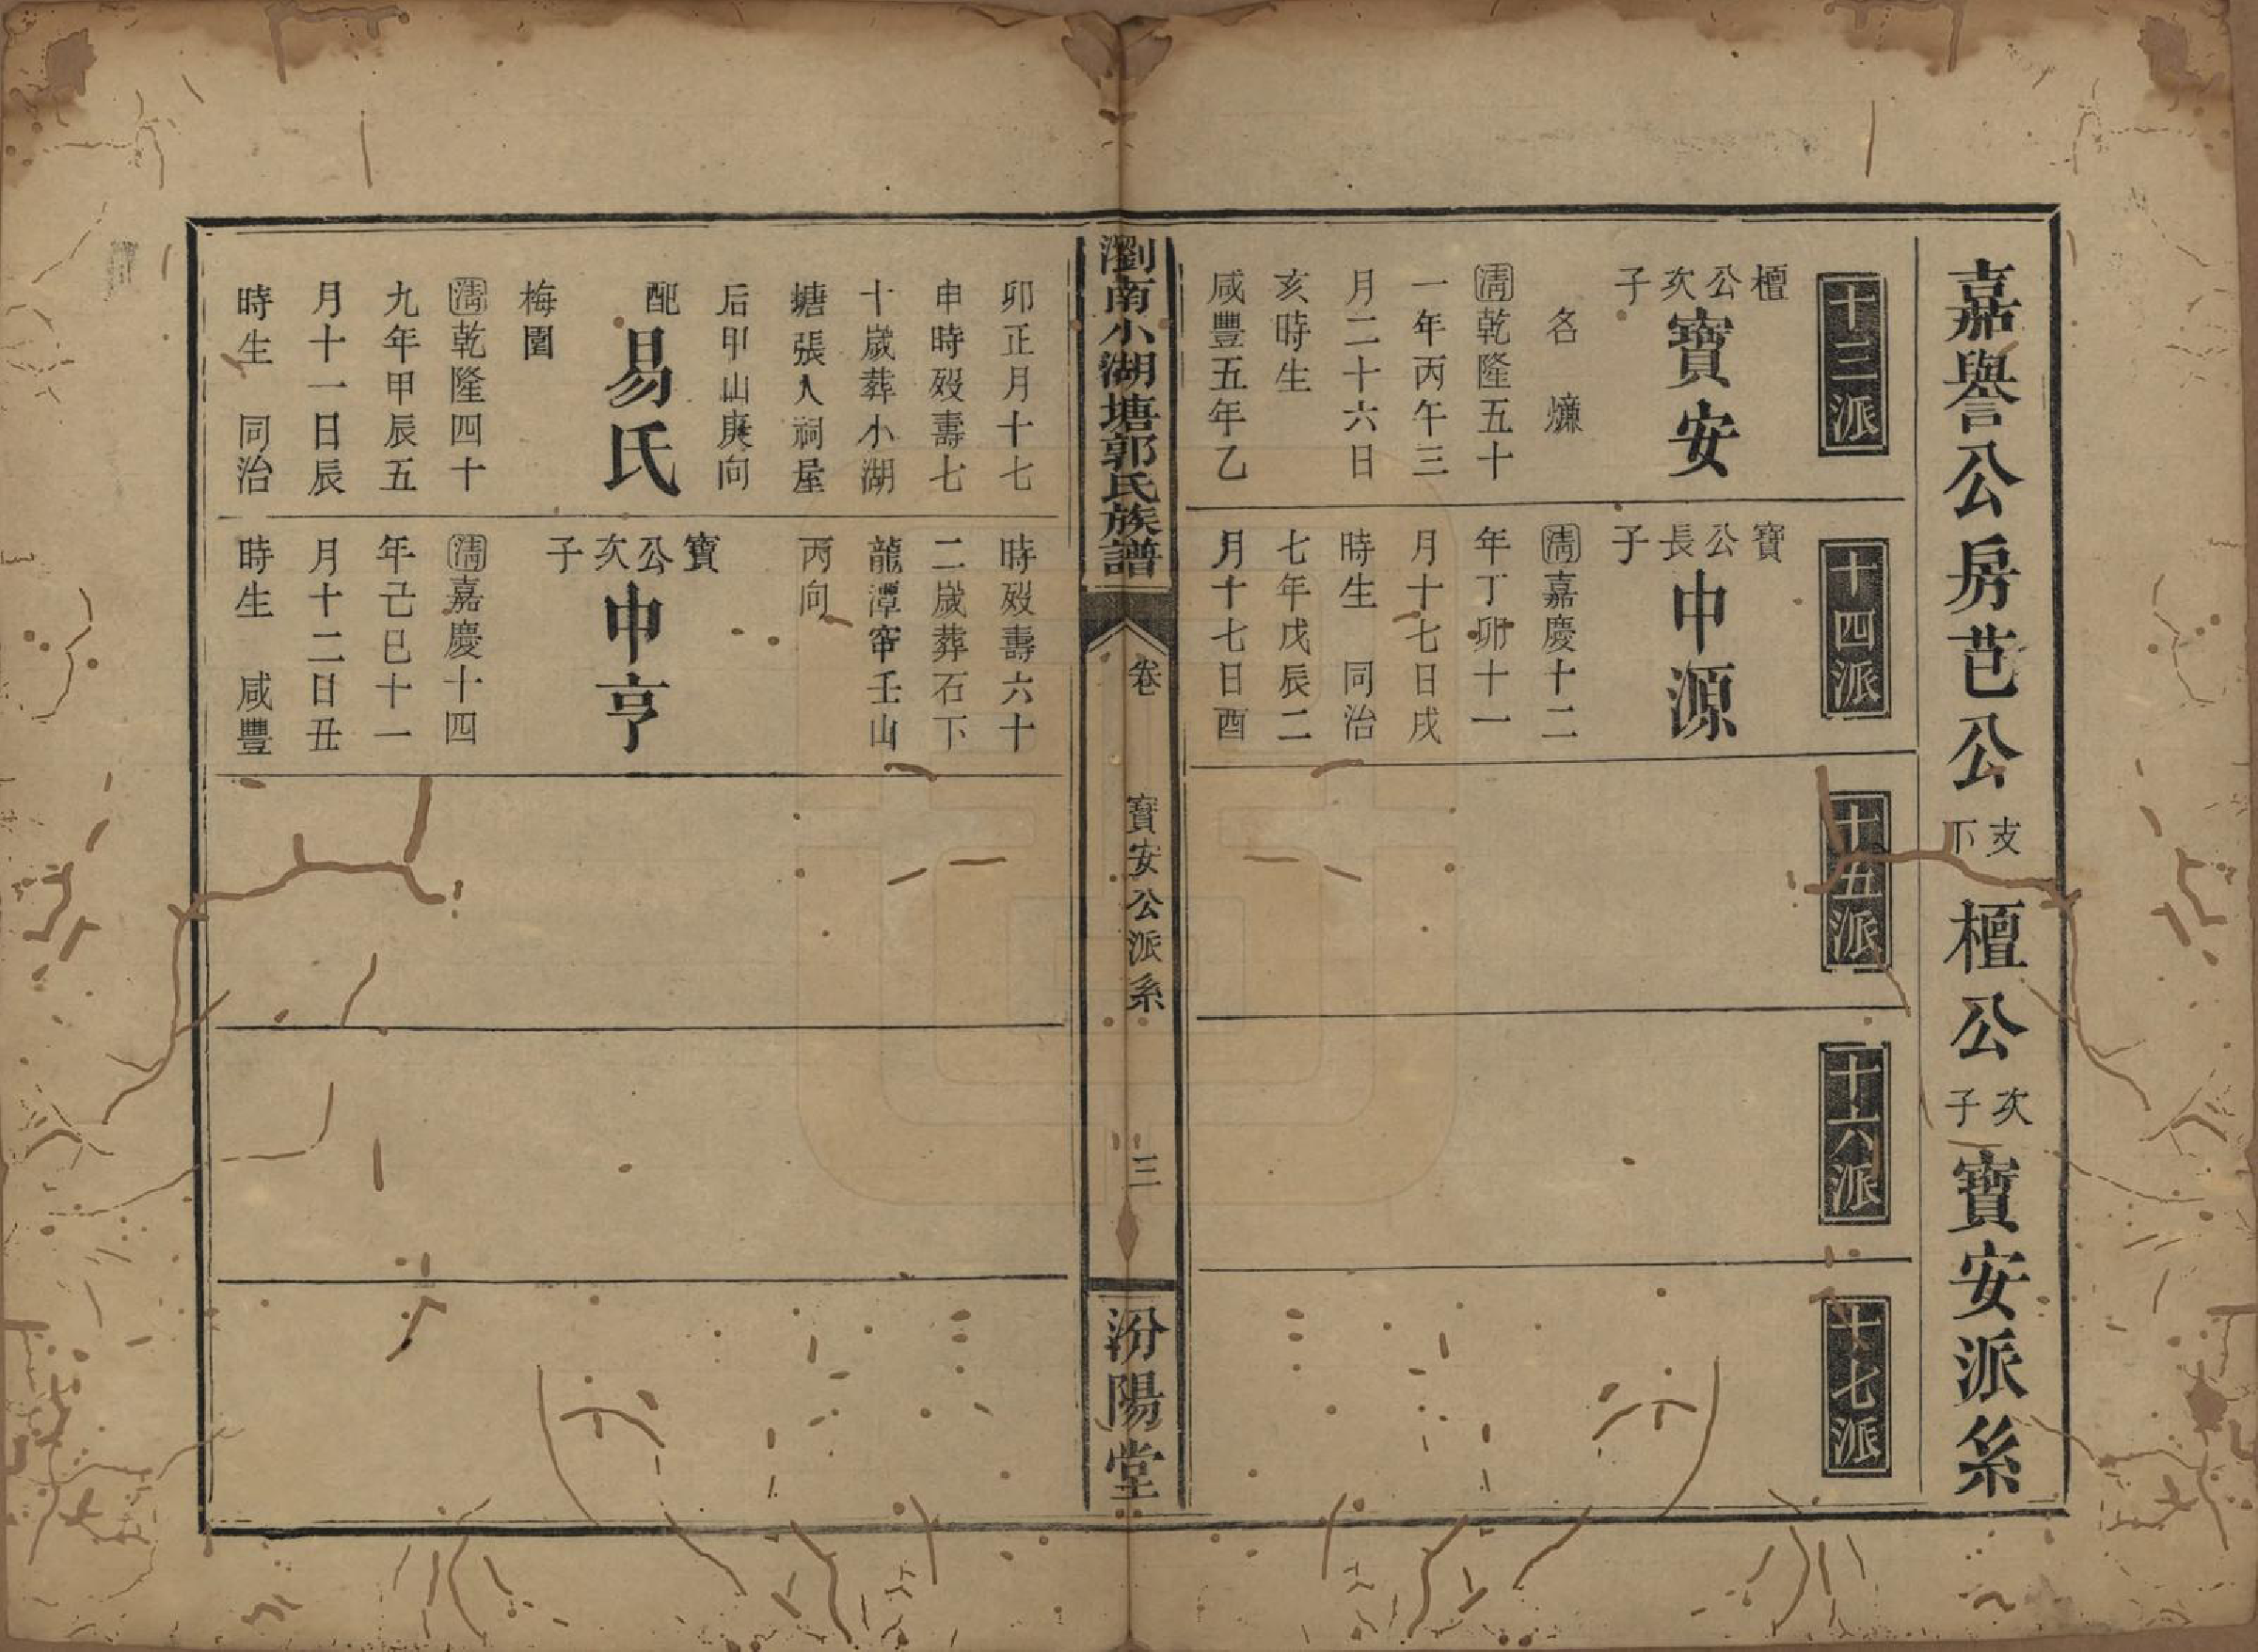 嘉譽公房芑公支下檀公次子寶安派系
十三派
檀公次子
寶安
名㷿
清乾隆五十
一年丙午三
月二十六日
亥時生
咸豐五年乙
十四派
寶公長子
申源
清嘉慶十二
年丁卯十一
月十七日戌
時生 同治
七年戊辰二
月十七日酉
十五派
十六派
十七派
瀏南小湖塘郭氏族譜
卷
寶安公派系
三
汾陽堂
卯正月十七
申時歿壽七
十歲葬小湖
塘張人祠屋
后甲山庚向
配
易氏
梅園
清乾隆四十
九年甲辰五
月十一日辰
時生 同治
時歿壽六十
二歲葬石下
龍潭窂壬山
丙向
寶公次子
申亨
清嘉慶十四
年己巳十一
月十二日丑
時生 咸豐